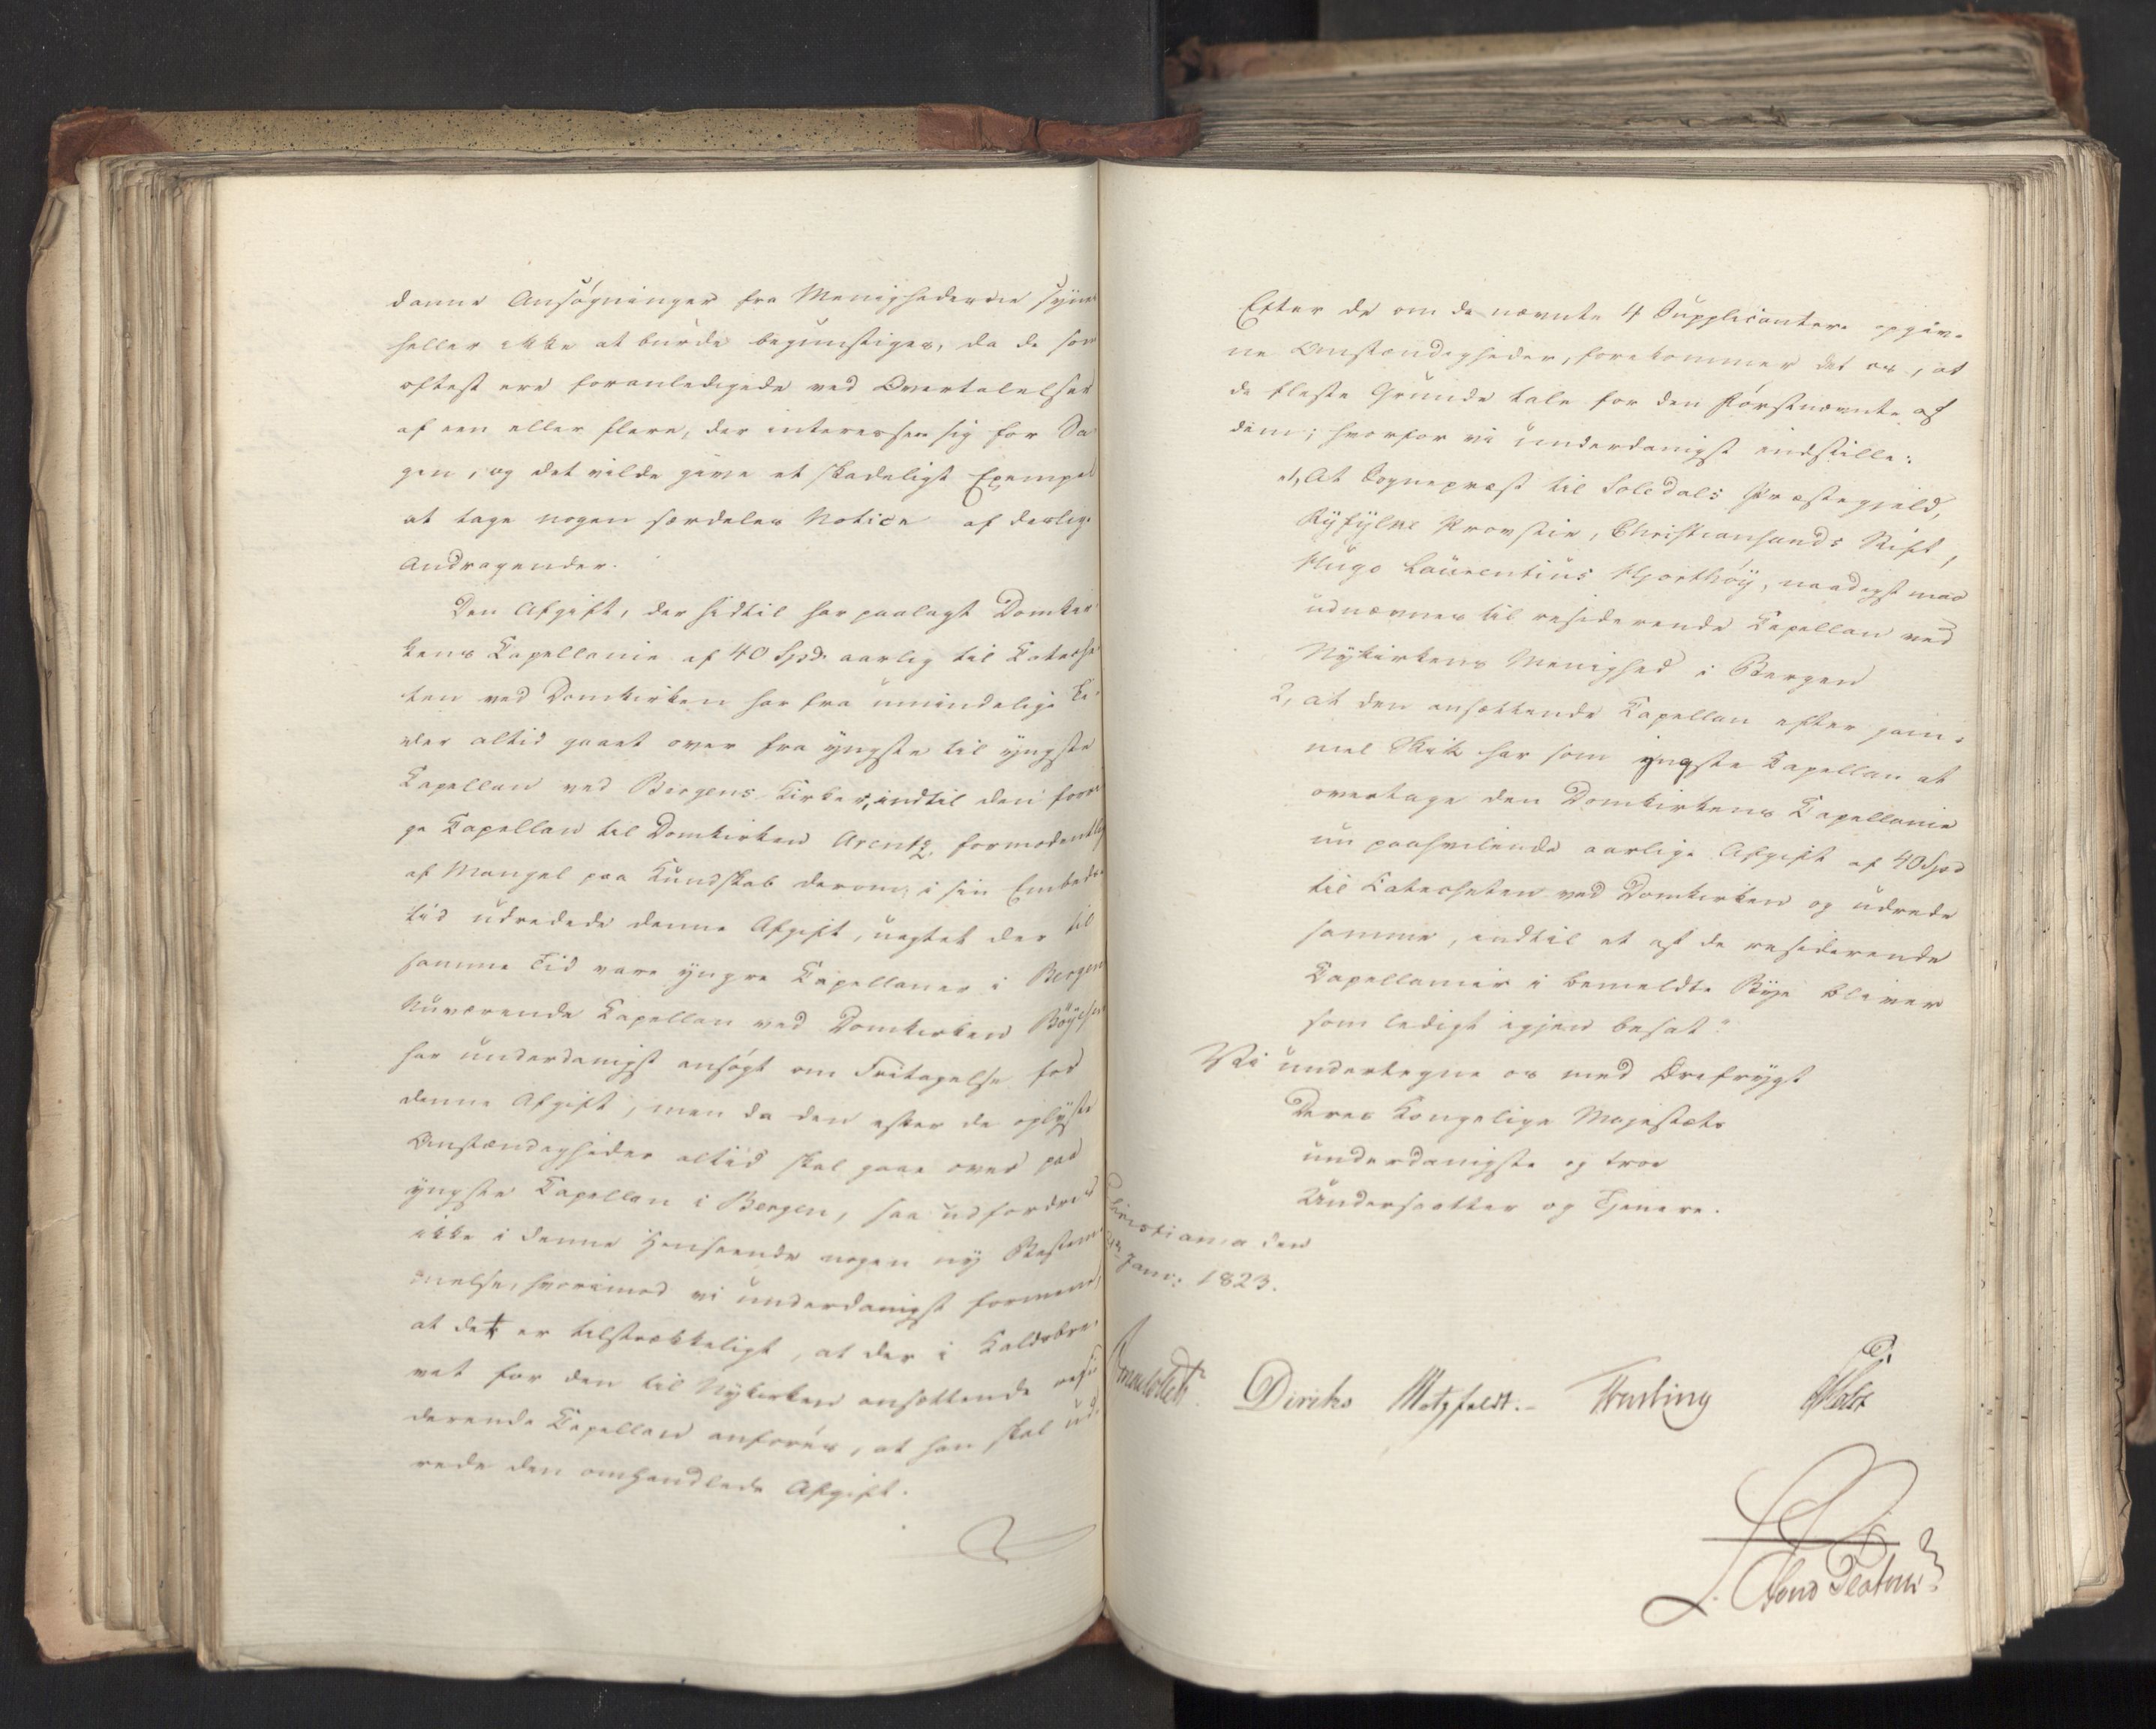 danne Ansøgninger fra Menighederne synes
heller ikke at burde begunstiges, da de som
oftest ere foranledigede ved Overtalelser
af een eller flere, der interessere sig for Sa
gen, og det vilde give et skadeligt Exempel
at tage nogen særdeles Notice af deslige
Andragender.
Den Afgift, der hidtil har paalagt Domkir
kens Capellanie af 40 Spd. aarlig til Cateche
ten ved Domkirken har fra umindelige Ti
der altid gaaet over fra yngste til yngste
Capellan ved Bergens Kirker, indtil den forri
ge Capellan til Domkirken Arentz, formodentlig
af Mangel paa Kundskab derom, i sin Embeds
tid udredede denne Afgift, uagtet der til
samme Tid vare yngre Capellaner i Bergen
Nuværende Capellan ved Domkirken Böyesen
har underdanigst ansøgt om Fritagelse for
denne Afgift, men da den efter de oplyste
Omstændigheder altid skal gaae over paa
yngste Capellan i Bergen, saa udfordres
ikke i denne Henseende nogen ny Bestem
melse, hvorimod vi underdanigst formene,
at det er tilstrækkeligt, at der i Kaldsbre
vet for den til Nykirken ansættende resi
derende Capellan anføres, at han skal ud
rede den omhandlede Afgift.
Efter de om de nævnte 4 Supplicantere opgiv
ne Omstændigheder, forekommer det os, at
de fleste Grunde tale for den Førstnævnte af
dem; hvorfor vi underdanigst indstille:
1, At Sognepræst til Soledals Præstegjeld,
Ryfylke Provstie, Christiansands Stift,
Hugo Laurentius Hjorthöy, naadigst maa
udnævnes til residerende Capellan ved
Nykirkens Menighed i Bergen
2, at den ansættende Capellan efter gam
mel Skik har som yngste Capellan at
overtage den Domkirkens Capellanie
nu paahvilende aarlige Afgift af 40 Spd
til Catecheten ved Domkirken og udrede
samme, indtil et af de residerende
Capellanier i bemeldte Bye bliver
som ledigt igjen besat"
Vi undertegne os med Ærefrygt
Deres Kongelige Majestæts
underdanigste og troe
Undersaatter og Tjenere.
Christiania den
Janr: 1823.
Diriks Motzfeldt. Treschow